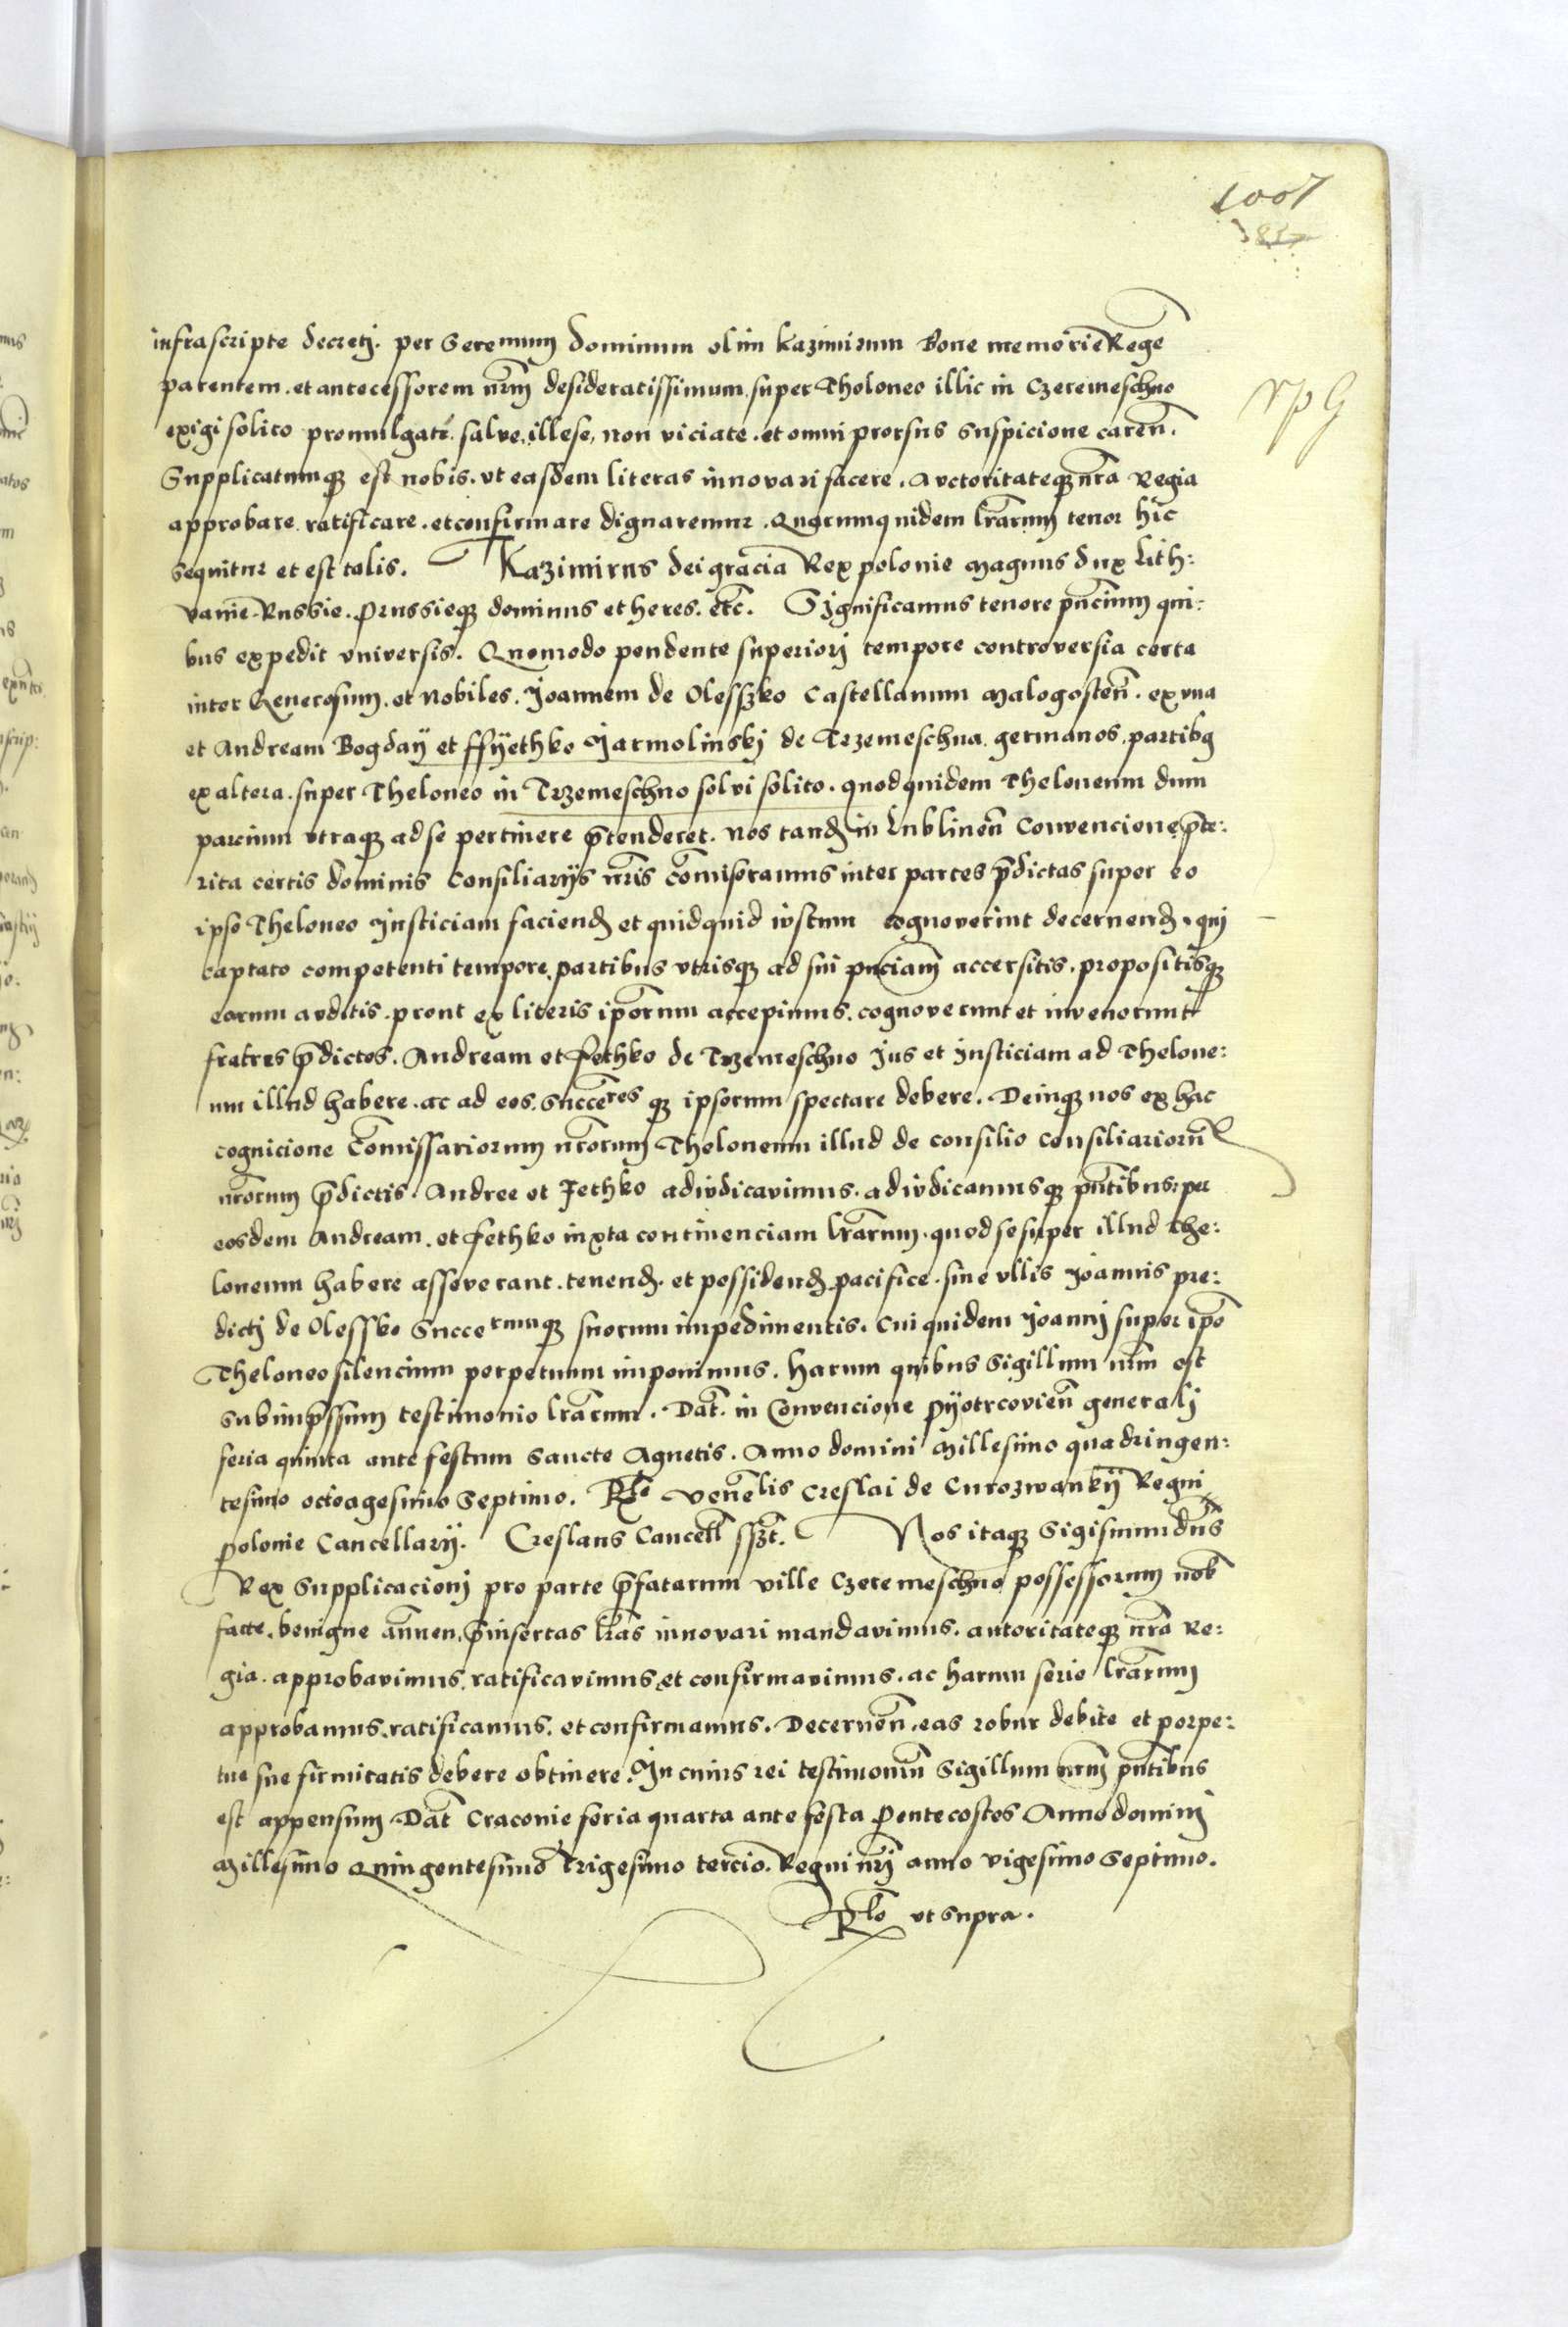 1007
infrascripte decretj. per Serenmum dominum olim kazimirum Bone memorie Rege
parentem. et antecessorem nr̄m desideratissimum. super Theloneo illic in Czeremeschno
exigi solito promulgati. salve, illese, non viciate. et omni prorsus suspicione caren̄.
Supplicatumqꝫ est nobis. vt easdem literas innovari facere. Auctoritateqꝫ nr̄a Regia
approbare. ratificare. et confirmare dignaremur. Quarumquidem lr̄arum tenor hic
sequitur et est talis. Kazimirus dei gracia Rex polonie Magnus dux Lith:
vanie Russie. Prussieqꝫ dominus et heres. etc̄. Significamus tenore pn̄cium qui:
bus expedit vniversis. Quomodo pendente superiorj tempore controversia certa
inter Generosum. et Nobiles. Joannem de Olesszko Castellanum Malogosten̄. ex vna
et Andream Bogdaÿ et ffÿethko Jarmolinskj de Trzemeschna. germanos. partibꝫ
ex altera. super Theloneo in Trzemeschno solvi solito. quodquidem Theloneum dum
parcium vtraqꝫ ad se pertinere p̄tenderet. nos tandꝫ in Lublinen̄ Convencione p̄te:
rita certis dominis Consiliarÿs nr̄is com̄iseramus inter partes p̄dictas super eo
ipso Theloneo Justiciam faciendꝫ et quidquid iustum cognoverint decernendꝫ. qui
captato competenti tempore. partibus vtrisqꝫ ad sui pn̄ciam accersitis. propositisqꝫ
eorum auditis. prout ex literis ip̄orum accepimus. cognoverunt et invenerunt
fratres p̄dictos. Andream et Fethko de Trzemeschno Jus et Justiciam ad Thelone:
um illud habere. ac ad eos Succeres qꝫ ipsorum spectare debere. Deinqꝫ nos ex hac
cognicione Com̄issariorum nr̄orum Theloneum illud de consilio consiliariorū
nr̄orum p̄dictis. Andree et Fethko adiudicavimus. adiudicamusqꝫ pn̄tibus: per
eosdem Andream. et Fethko iuxta continenciam lr̄arum. quod se super illud The:
loneum habere asseverant. tenendꝫ. et possidendꝫ pacifice. sine vllis Joannis pre:
dictj de Olessko Succerumqꝫ suorum impedimentis. Cui quidem Joannj super ip̄o
Theloneo silencium perpetuum imponimus. Harum quibus Sigillum nr̄m est
subimp̄ssum testimonio lr̄arum. Dat̄. in Convencione Pÿotrcovien̄ generalj
feria quinta ante festum Sancte Agnetis. Anno domini Millesimo quadringen:
tesimo octoagesimo Septimo. Rlo Venelis Creslai de Curozwankÿ Regni
polonie Cancellarÿ. Creslaus Cancell̄ sszt̄. Nos itaqꝫ Sigismundus
Rex Supplicacionj pro parte p̄fatarum ville Czeremeschno possessorum nob̄
facte. benigne an̄nen. p̄insertas lr̄as innovari mandavimus. autoritateqꝫ nr̄a Re:
gia. approbavimus, ratificavimus, et confirmavimus. ac harum serie lr̄arum
approbamus. ratificamus. et confirmamus. Decernen̄. eas robur debite et perpe:
tue sue firmitatis debere obtinere. In cuius rei testimoniū Sigillum nr̄m pn̄tibus
est appensum. Dat̄ Cracovie feria quarta ante festa Pentecostes Anno dominj
Millesimo Quingentesimo Trigesimo tercio. Regni nr̄j anno vigesimo Septimo.
Rlo vt supra.